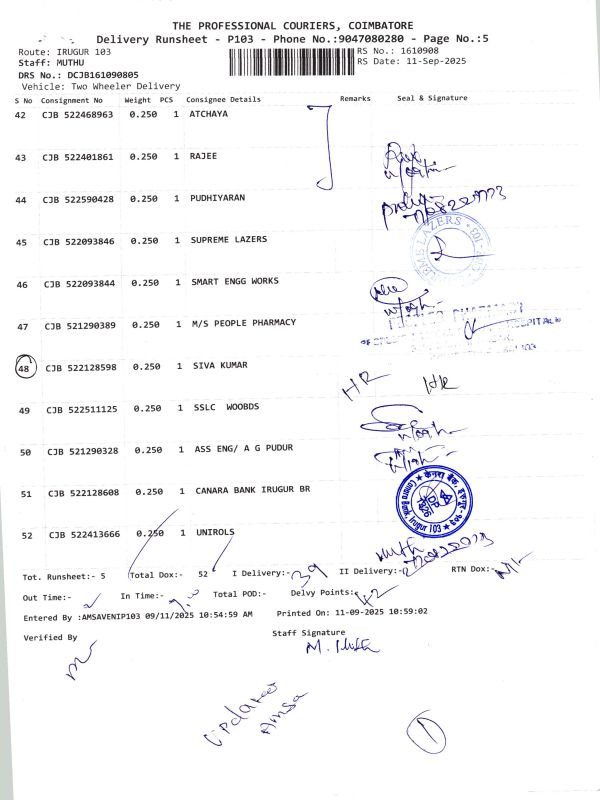 THE PROFESSIONAL COURIERS, COIMBATORE
Delivery Runsheet - P103 - Phone No.:9047080280 - Page No.:5
Route: IRUGUR 103
RS No.: 1610908
Staff: MUTHU
RS Date: 11-Sep-2025
DRS No.: DCJB161090805
Vehicle: Two Wheeler Delivery
S No Consignment No Weight PCS Consignee Details Remarks Seal & Signature
42 CJB 522468963 0.250 1 ATCHAYA
43 CJB 522401861 0.250 1 RAJEE
44 CJB 522590428 0.250 1 PUDHIYARAN
45 CJB 522093846 0.250 1 SUPREME LAZERS
46 CJB 522093844 0.250 1 SMART ENGG WORKS
47 CJB 521290389 0.250 1 M/S PEOPLE PHARMACY
48 CJB 522128598 0.250 1 SIVA KUMAR
HR
49 CJB 522511125 0.250 1 SSLC WOOBDS
50 CJB 521290328 0.250 1 ASS ENG/ A G PUDUR
51 CJB 522128608 0.250 1 CANARA BANK IRUGUR BR
Canara Bank, Irugur 103
52 CJB 522413666 0.250 1 UNIROLS
Tot. Runsheet:- 5 Total Dox:- 52 I Delivery:- 39 II Delivery:- RTN Dox:-
Out Time:- In Time:- Total POD:- Delvy Points:- 42
Entered By :AMSAVENIP103 09/11/2025 10:54:59 AM Printed On: 11-09-2025 10:59:02
Verified By Staff Signature
M. Muth
Updated
Amsa
1